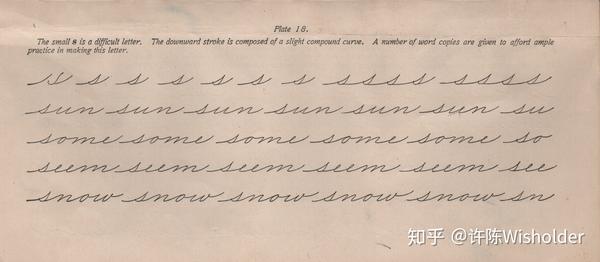 Plate 18.
The small s is a difficult letter. The downward stroke is composed of a slight compound curve. A number of word copies are given to afford ample
practice in making this letter.
s s s s s s s s ssss ssss
sun sun sun sun sun sun su
some some some some some so
seem seem seem seem seem see
snow snow snow snow snow sn
知乎 @许陈Wisholder